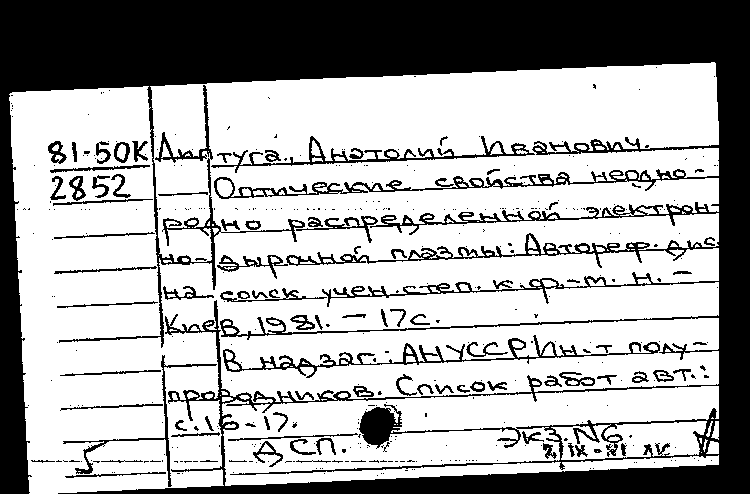 81-50К Диптуга, Анатолий Иванович.
2852 Оптические свойства неодно-
родно распределенной электрон-
но-дырочной плазмы: Автореф. дис.
на соиск. учен. степ. к. ф.-м. н. -
Киев, 1981. - 17с.
В надзаг.: АН УССР, Ин-т полу-
проводников. Список работ авт.:
с. 16-17.
ДСП. Экз. N6.
5